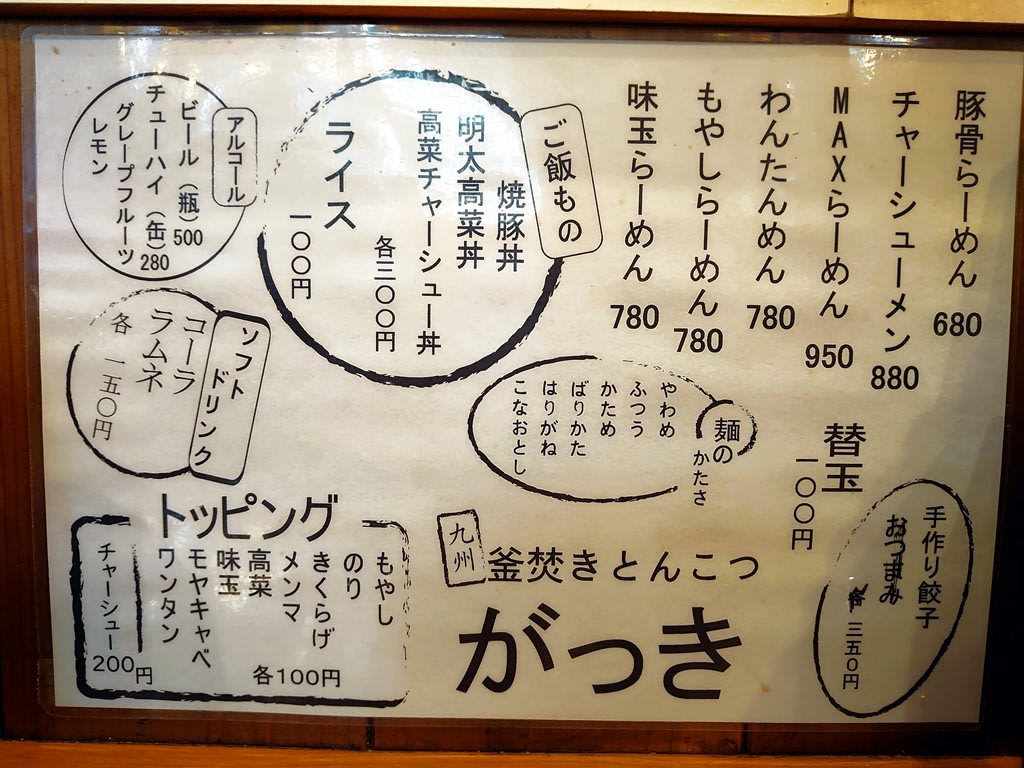 豚骨らーめん 680
チャーシューメン 880
MAXらーめん 950
わんたんめん 780
もやしらーめん 780
味玉らーめん 780
替玉
一〇〇円
麺の
かたさ
やわめ
ふつう
かため
ばりかた
はりがね
こなおとし
ご飯もの
焼豚丼
明太高菜丼
高菜チャーシュー丼
各三〇〇円
ライス
一〇〇円
アルコール
ビール(瓶)500
チューハイ(缶)280
グレープフルーツ
レモン
ソフト
ドリンク
コーラ
ラムネ
各 一五〇円
手作り餃子
おつまみ
三五〇円
九州
釜焚きとんこつ
がっき
トッピング
もやし
のり
きくらげ
メンマ
高菜
味玉
モヤキャベ
ワンタン
各100円
チャーシュー
200円